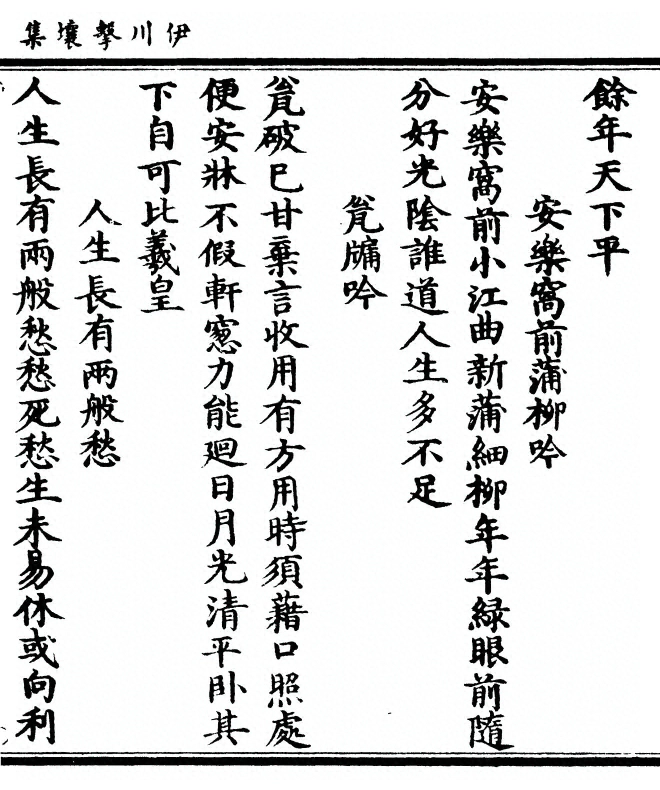 伊川擊壤集
餘年天下平
安樂窩前蒲柳吟
安樂窩前小江曲新蒲細柳年年緑眼前隨
分好光陰誰道人生多不足
瓮牖吟
瓮破已甘棄言收用有方用時須藉口照處
便安牀不假軒窓力能廻日月光清平卧其
下自可比羲皇
人生長有兩般愁
人生長有兩般愁愁死愁生未易休或向利